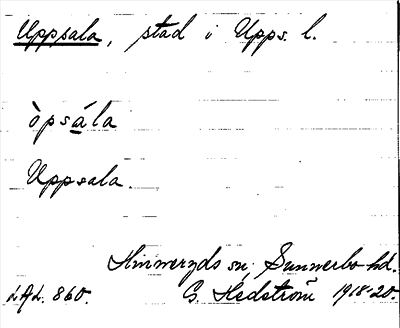 Uppsala, stad i Upps. l.
òpsála
Uppsala.
Hinneryds sn, Sunnerbo hd.
LAL. 860. G. Hedström 1918-20.